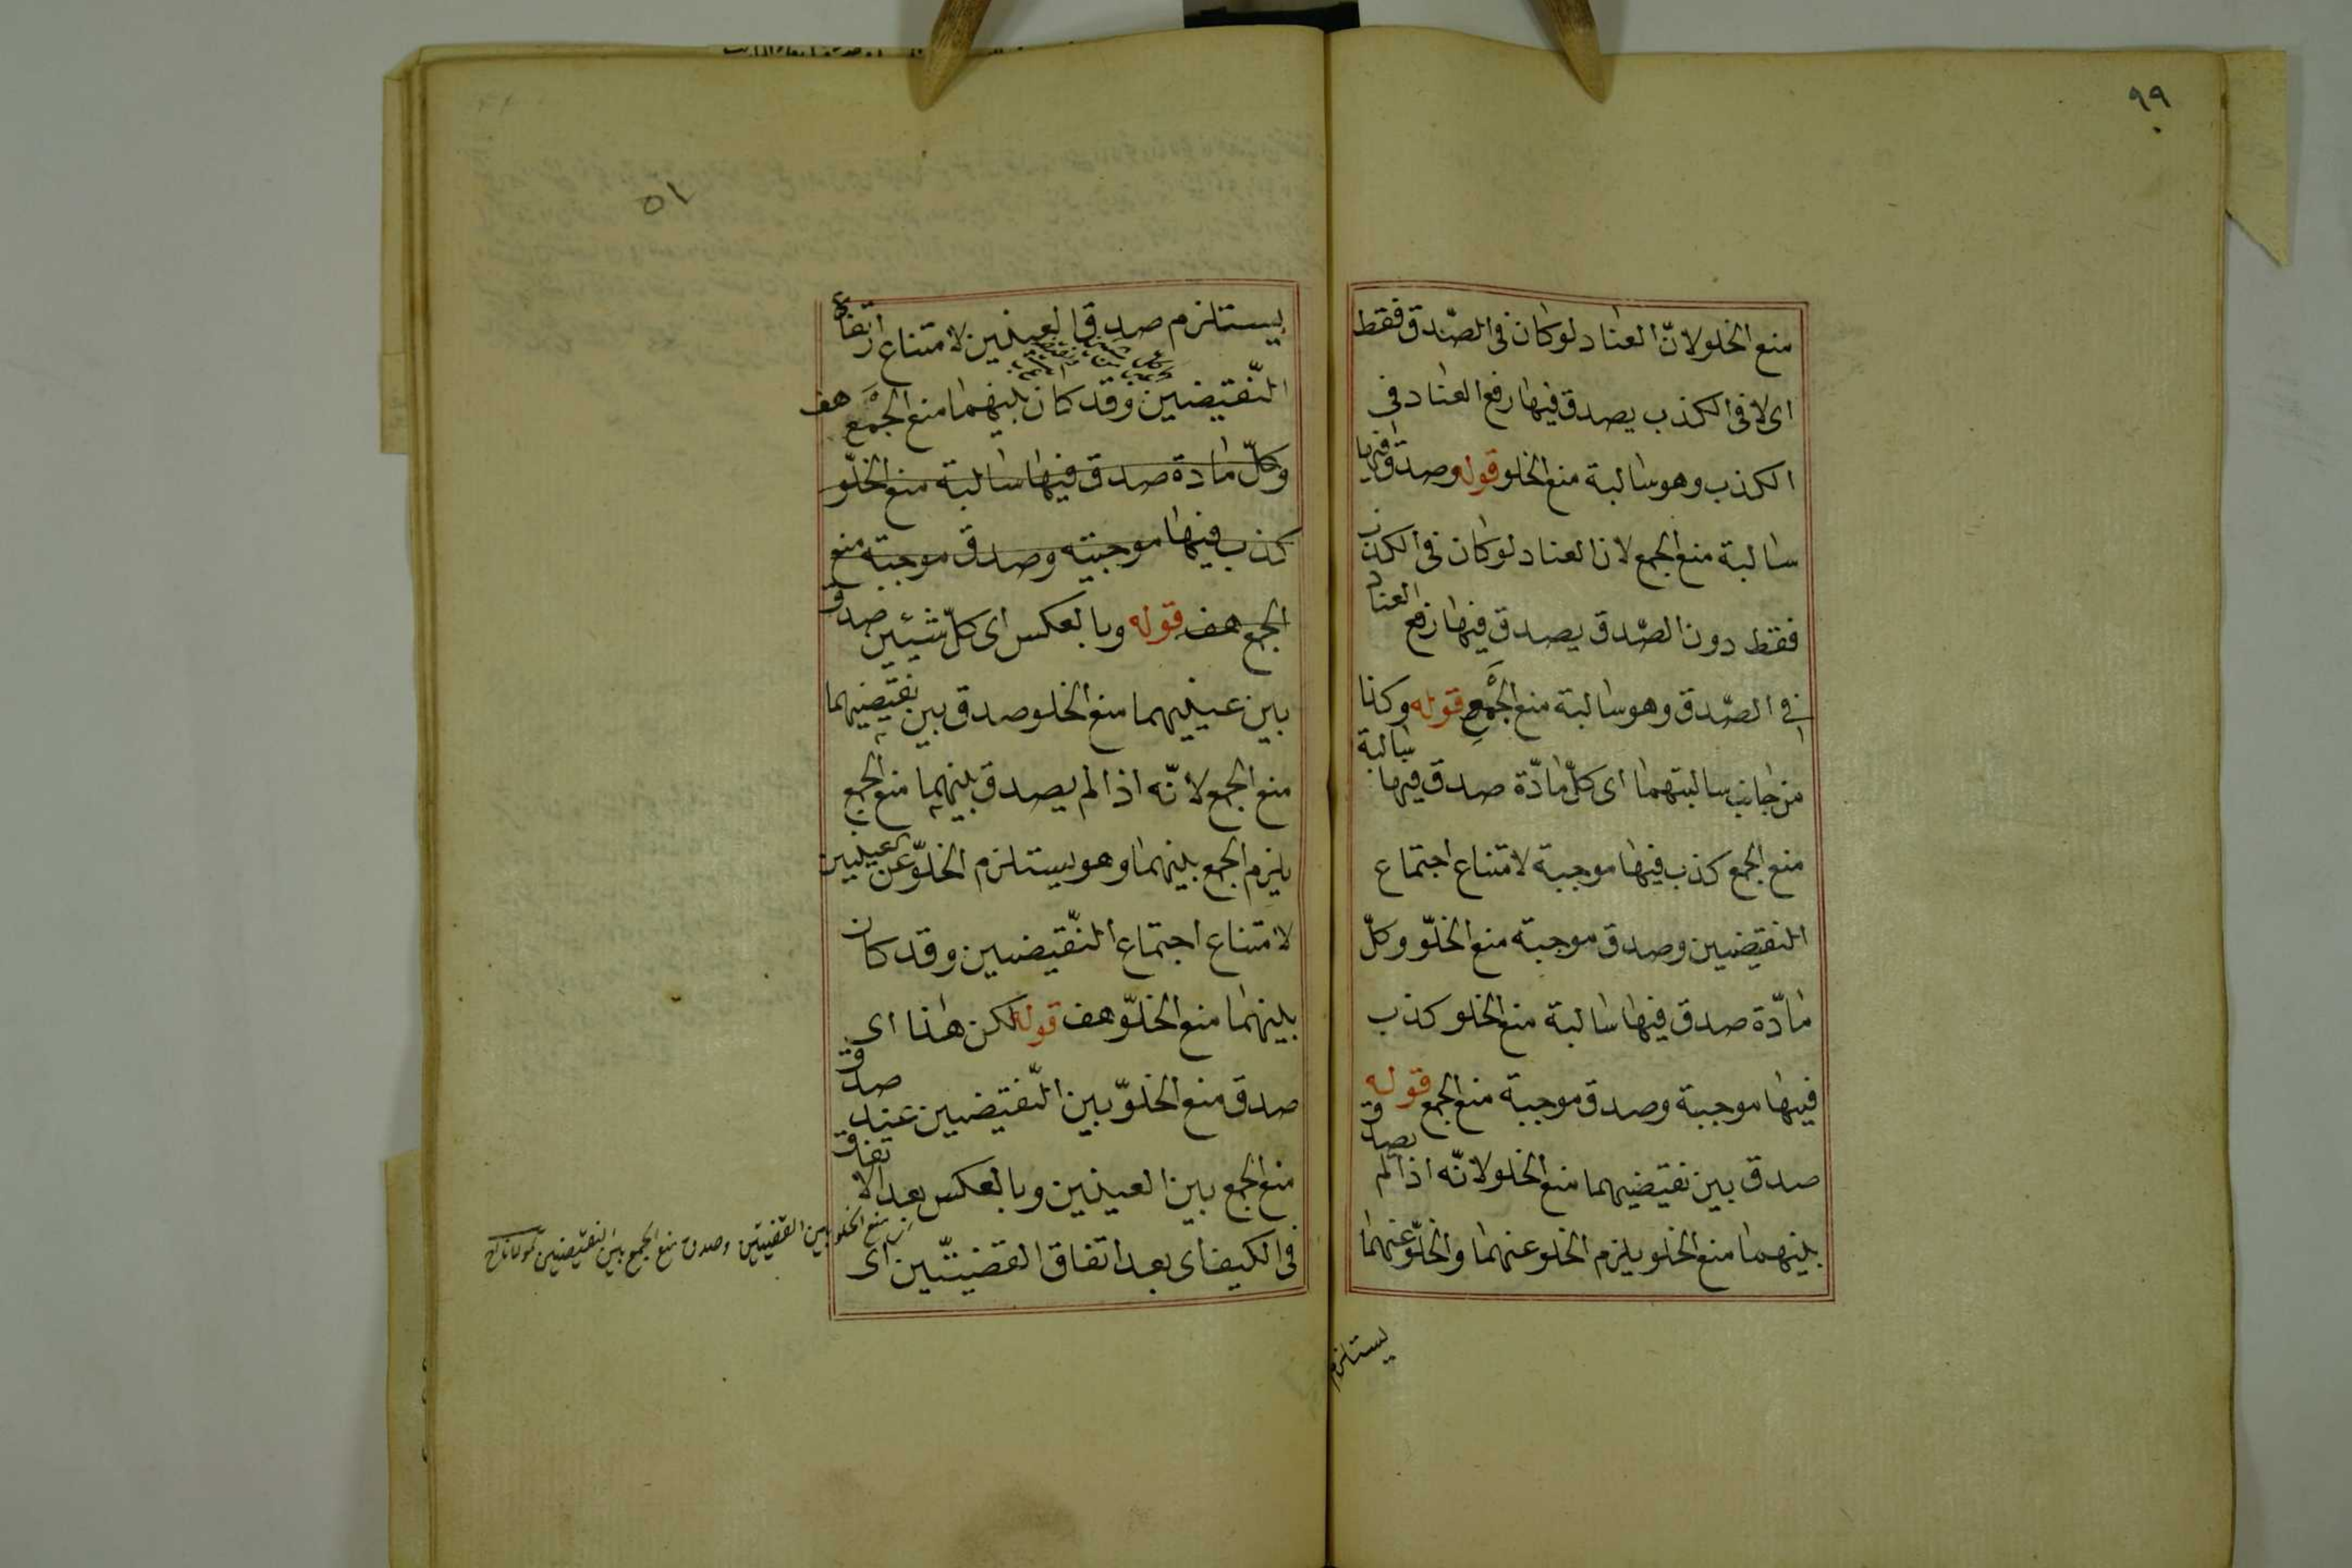 ٩٩
منع الخلو لانّ العناد لو كان فى الصّدق فقط
اى لا فى الكذب يصدق فيها رفع العناد فى
الكذب وهو سالبة منع الخلو قوله وصدق فيها
سالبة منع الجمع لان العناد لو كان فى الكذب
فقط دون الصّدق يصدق فيها رفع العناد
فى الصّدق وهو سالبة منع الجمع قوله وكذا
من جانب سالبتهما اى كلّ مادّة صدق فيها سالبة
منع الجمع كذب فيها موجبة لامتناع اجتماع
النقيضين وصدق موجبة منع الخلوّ وكلّ
مادّة صدق فيها سالبة منع الخلو كذب
فيها موجبة وصدق موجبة منع الجمع قوله
صدق بين نقيضيهما منع الخلو لانّه اذا لم يصدق
بينهما منع الخلو يلزم الخلو عنهما والخلوّ عنهما
يستلزم
٥١
يستلزم صدق العينين لامتناع ارتفاع
النّقيضين وقد كان بينهما منع الجمع هف
وكلّ مادة صدق فيها سالبة منع الخلّو
كذب فيها موجبته وصدق موجبة منع
الجمع هف قوله وبالعكس اى كلّ شيئين صدق
بين عينيهما منع الخلو صدق بين نقيضيهما
منع الجمع لانّه اذا لم يصدق بينهما منع الجمع
يلزم الجمع بينهما وهو يستلزم الخلوّ عن العينين
لامتناع اجتماع النّقيضين وقد كان
بينهما منع الخلوّ هف قوله لكن هذا اى
صدق منع الخلوّ بين النّقيضين عند صدق
منع الجمع بين العينين وبالعكس بعد الاتفاق
فى الكيف اى بعد اتفاق القضيتّين اى
منع الخلو بين القضيتين وصدق منع الجمع بين النقيضين